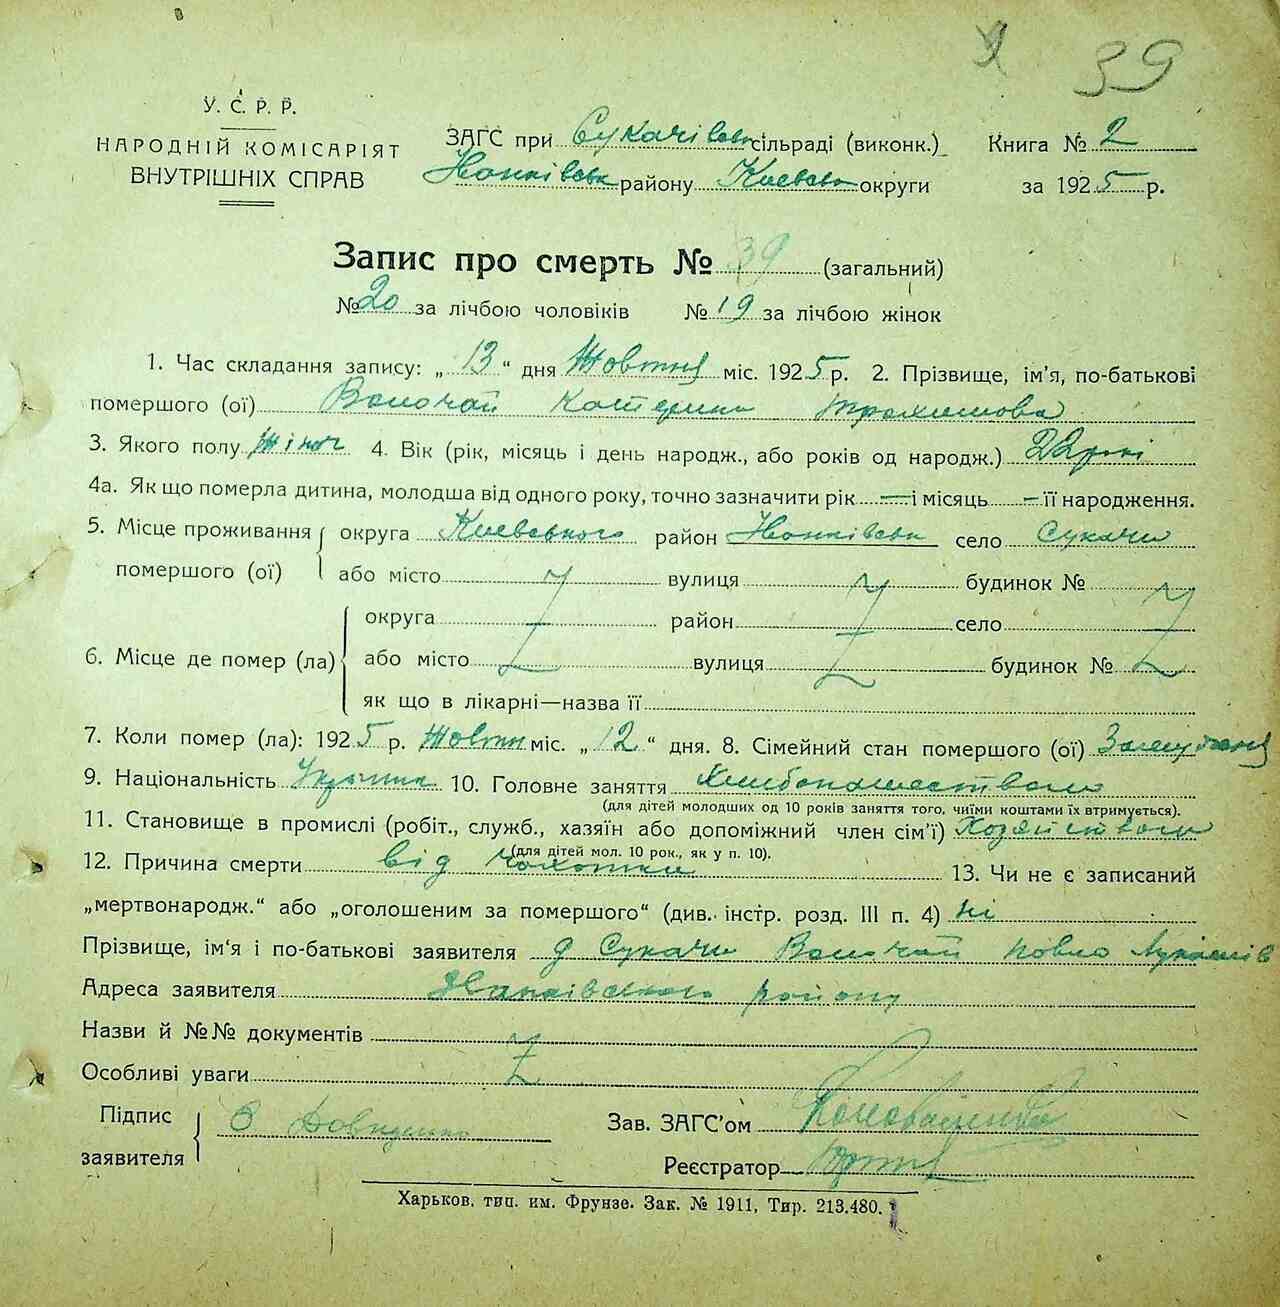 39
У. С. Р. Р.
НАРОДНІЙ КОМІСАРІЯТ
ВНУТРІШНІХ СПРАВ
ЗАГС при Сукачівськ сільраді (виконк.)
Книга № 2
району Киевськ округи
за 1925 р.
Запис про смерть № 39 (загальний)
№ 20 за лічбою чоловіків № 19 за лічбою жінок
1. Час складання запису: „ 13 “ дня Жовтня міс. 1925 р. 2. Прізвище, ім’я, по-батькові
помершого (ої) Катерина Трохимова
3. Якого полу жіноч 4. Вік (рік, місяць і день народж., або років од народж.) 22 рокі
4а. Як що померла дитина, молодша від одного року, точно зазначити рік — і місяць — її народження.
5. Місце проживання округа Киевського район село Сукачи
помершого (ої) або місто вулиця будинок №
округа район село
6. Місце де помер (ла) або місто вулиця будинок №
як що в лікарні—назва її
7. Коли помер (ла): 1925 р. Жовтн міс. „ 12 “ дня. 8. Сімейний стан помершого (ої)
9. Національність 10. Головне заняття
(для дітей молодших од 10 років заняття того, чиїми коштами їх втримується).
11. Становище в промислі (робіт., служб., хазяїн або допоміжний член сім’ї)
(для дітей мол. 10 рок., як у п. 10).
12. Причина смерти від чохотки 13. Чи не є записаний
„мертвонародж.“ або „оголошеним за помершого“ (див. інстр. розд. III п. 4) ні
Прізвище, ім‘я і по-батькові заявителя д Сукачи Повло
Адреса заявителя району
Назви й №№ документів
Особливі уваги
Підпис
заявителя
Зав. ЗАГС’ом
Реєстратор
Харьков, тип. им. Фрунзе. Зак. № 1911, Тир. 213.480.